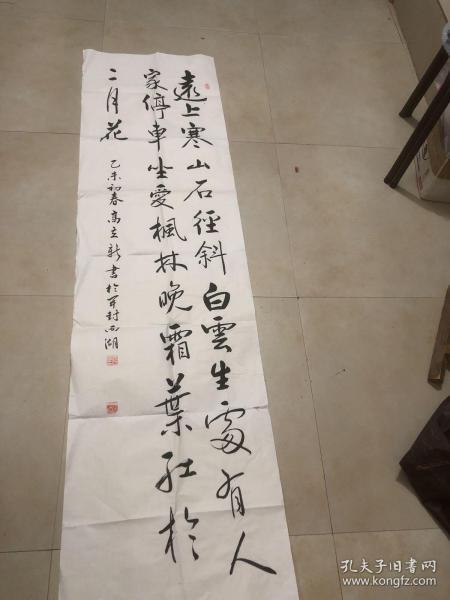 遠上寒山石徑斜白雲生處有人
家停車坐愛楓林晚霜葉紅於
二月花
乙未初春高立新書於開封西湖
孔夫子旧书网
www.kongfz.com